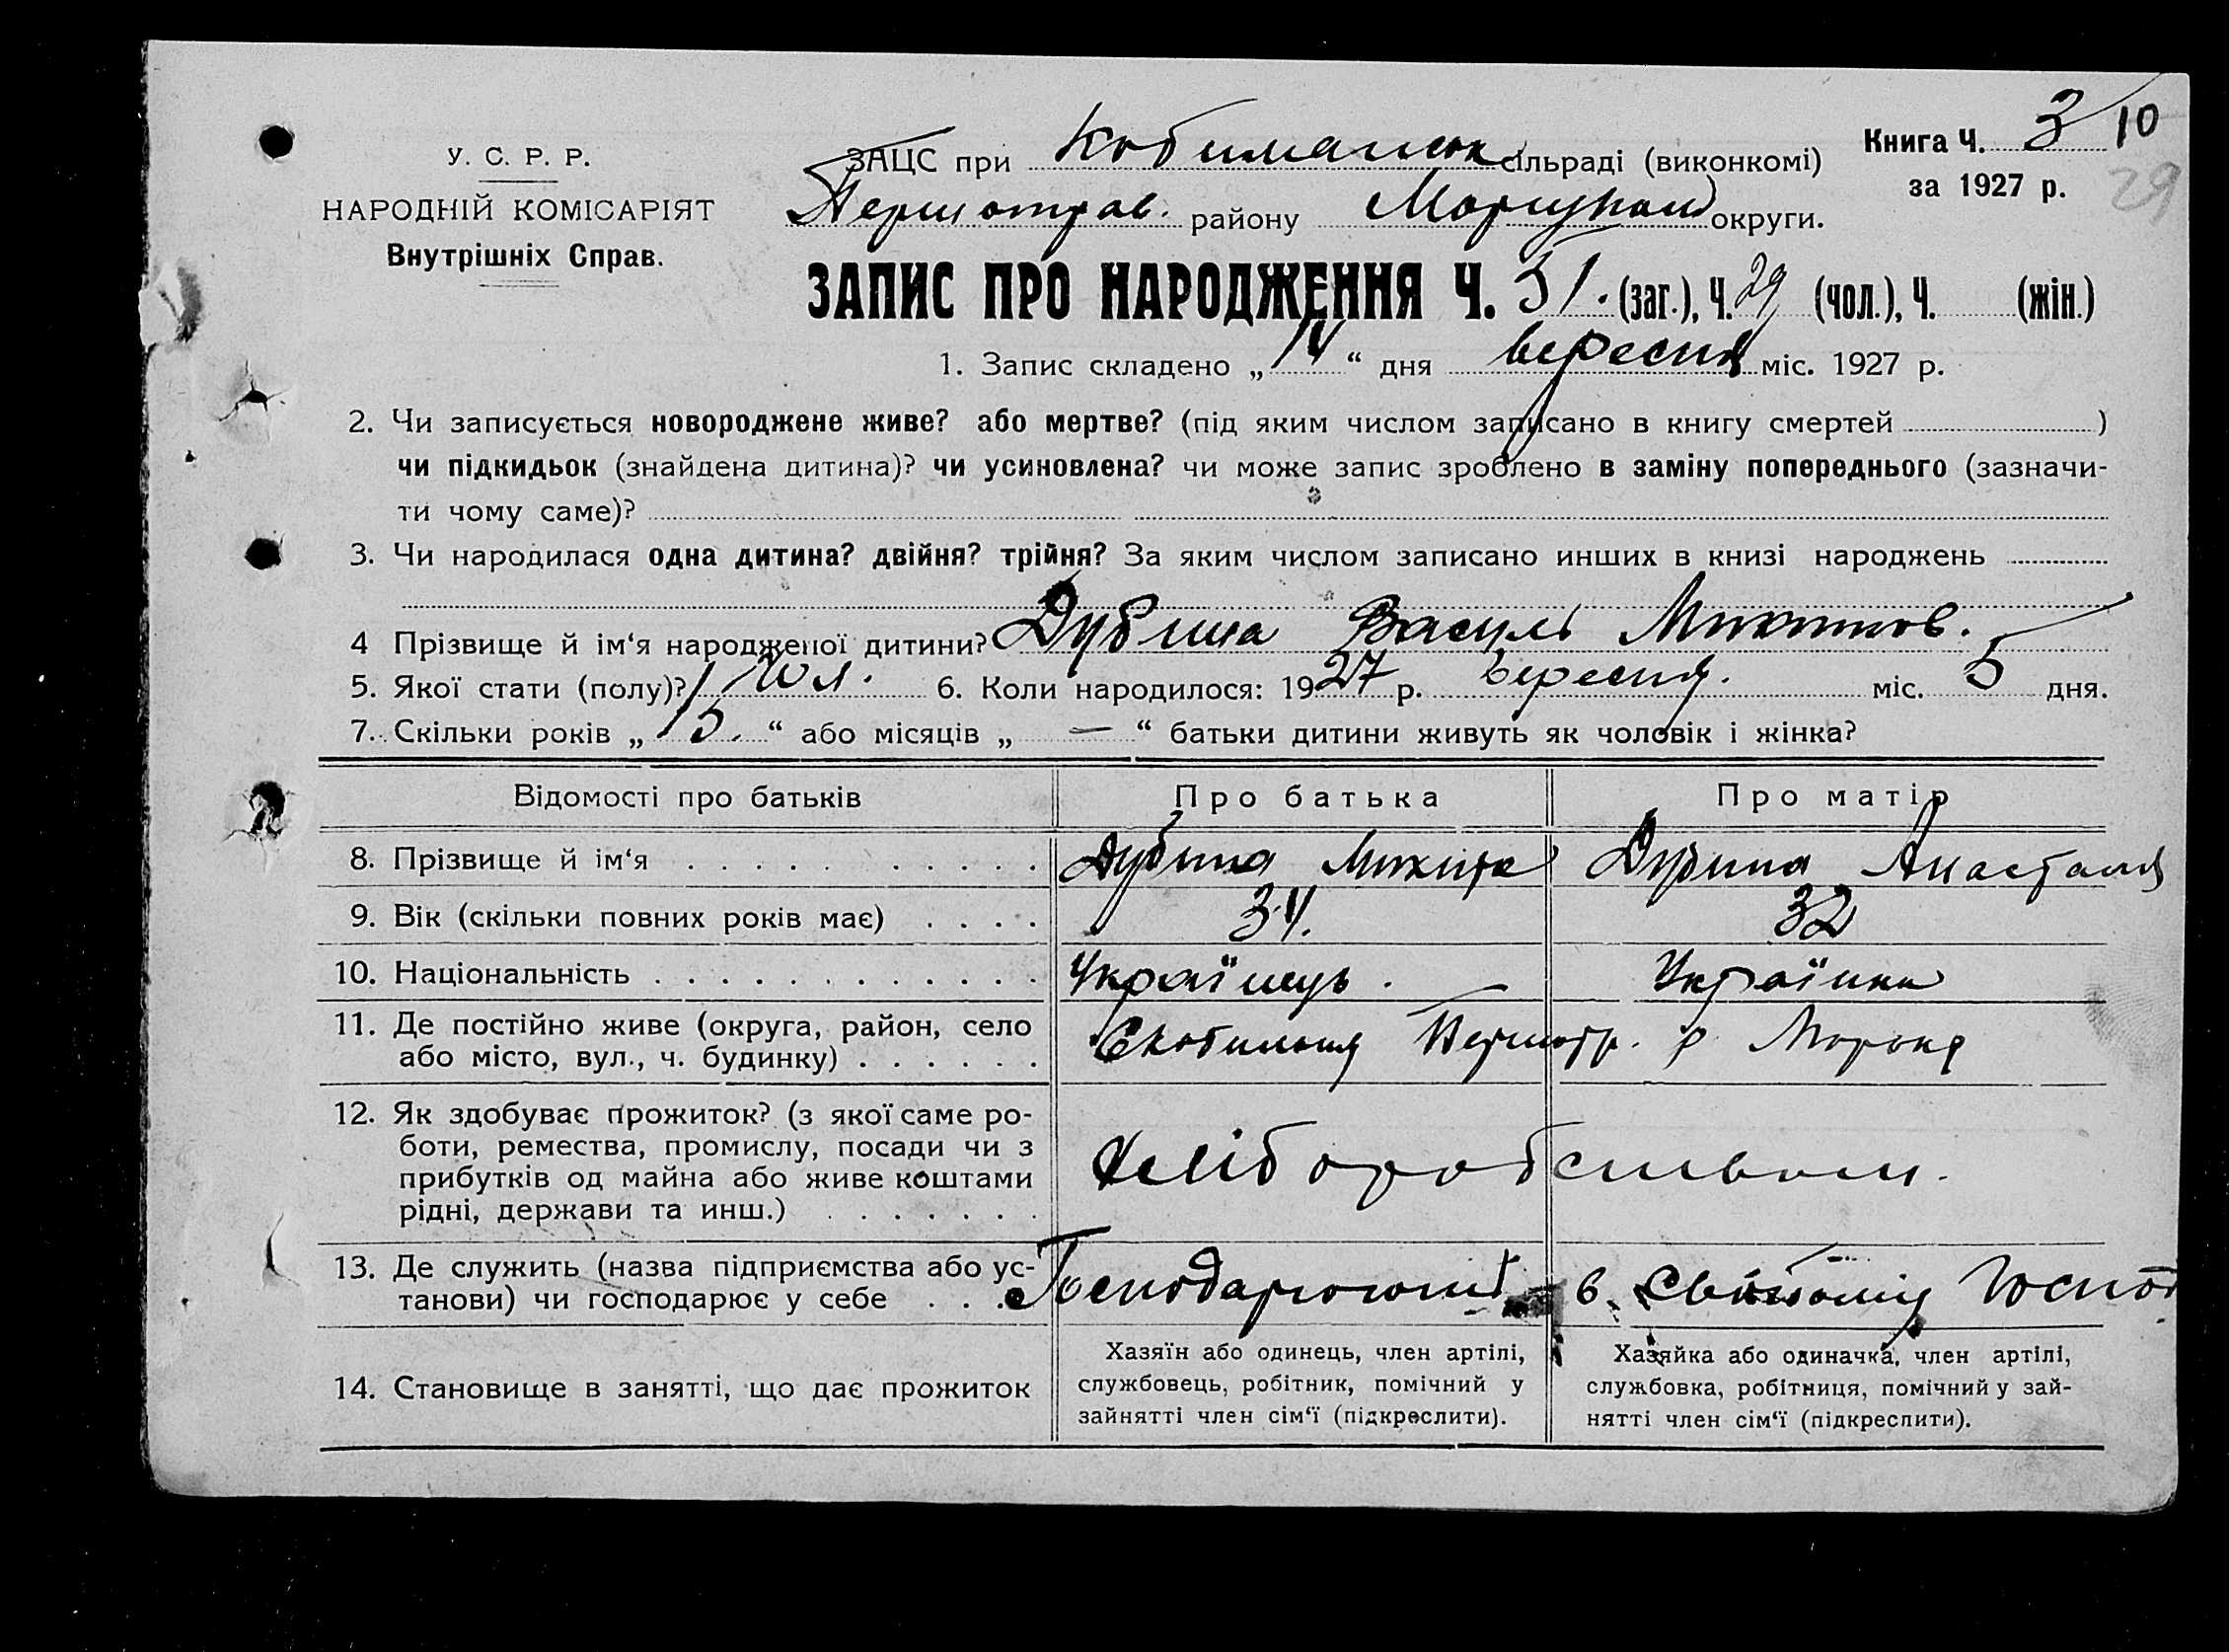 У. С. Р. Р.
НАРОДНІЙ КОМІСАРІЯТ
Внутрішніх Справ.
ЗАЦС при сільраді (виконкомі)
Першотрав. району округи.
Книга Ч. 3 10
за 1927 р. 29
ЗАПИС ПРО НАРОДЖЕННЯ Ч. 51. (заг.), Ч. 29 (чол.), Ч. (жін.)
1. Запис складено „14“ дня вересня міс. 1927 р.
2. Чи записується новороджене живе? або мертве? (під яким числом записано в книгу смертей )
чи підкидьок (знайдена дитина)? чи усиновлена? чи може запис зроблено в заміну попереднього (зазначи-
ти чому саме)?
3. Чи народилася одна дитина? двійня? трійня? За яким числом записано инших в книзі народжень
4 Прізвище й ім‘я народженої дитини? Дубина Василь Микитов.
5. Якої стати (полу)? Чол. 6. Коли народилося: 1927 р. вересня. міс. 5 дня.
7. Скільки років „ 15. “ або місяців „ — “ батьки дитини живуть як чоловік і жінка?
Відомості про батьків Про батька Про матір
8. Прізвище й ім‘я Дубина Микита Дубина Анастасия
9. Вік (скільки повних років має) 34. 32
10. Національність Українець. Українка
11. Де постійно живе (округа, район, село
або місто, вул., ч. будинку) Першотр. р.
12. Як здобуває прожиток? (з якої саме ро-
боти, ремества, промислу, посади чи з
прибутків од майна або живе коштами
рідні, держави та инш.) Хліборобством.
13. Де служить (назва підприємства або ус-
танови) чи господарює у себе Господарюють в своїому госпо
14. Становище в занятті, що дає прожиток
Хазяїн або одинець, член артілі,
службовець, робітник, помічний у
зайнятті член сім‘ї (підкреслити).
Хазяйка або одиначка, член артілі,
службовка, робітниця, помічний у зай-
нятті член сім‘ї (підкреслити).